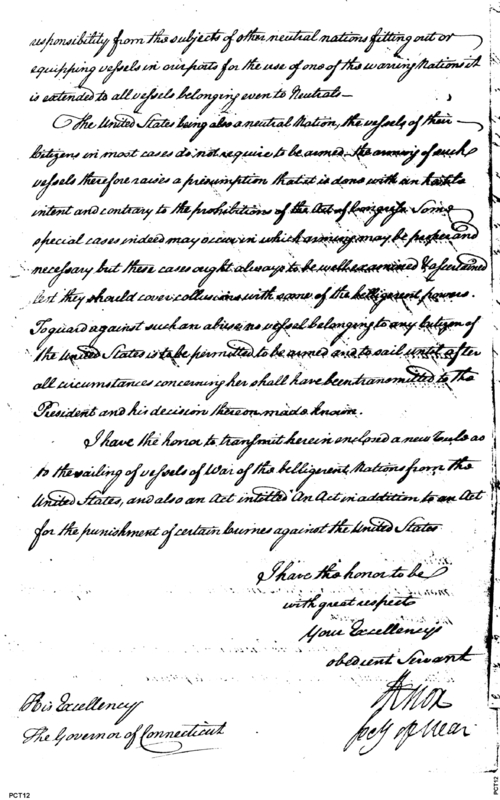 responsibility from the subjects of other neutral nations fitting out or
equipping vessels in our ports for the use of one of the warring Nations it
is extended to all vessels belonging even to Neutrals—
The United States being also a neutral Nation, the vessels of their
Citizens in most cases do not require to be armed the arming of such
vessels therefore raises a presumption that it is done with an hostile
intent and contrary to the prohibitions of the Act of Congress. Some
special cases indeed may occur in which arming may be proper and
necessary but these cases ought always to be well examined & ascertained
lest they should cover collusions with some of the belligerent powers.
To guard against such an abuse no vessel belonging to any Citizen of
the United States is to be permitted to be armed and to sail until after
all circumstances concerning her shall have been transmitted to the
President and his decision thereon made known.
I have the honor to transmit herein enclosed a new Rule as
to the sailing of vessels of War of the belligerent Nations from the
United States, and also an Act intitled "An Act in addition to an Act
for the punishment of certain Crimes against the United States
I have the honor to be
with great respect
Your Excellency's
obedient Servant
HKnox
Secy of War
His Excellency
The Governor of Connecticut
PCT12
PCT12